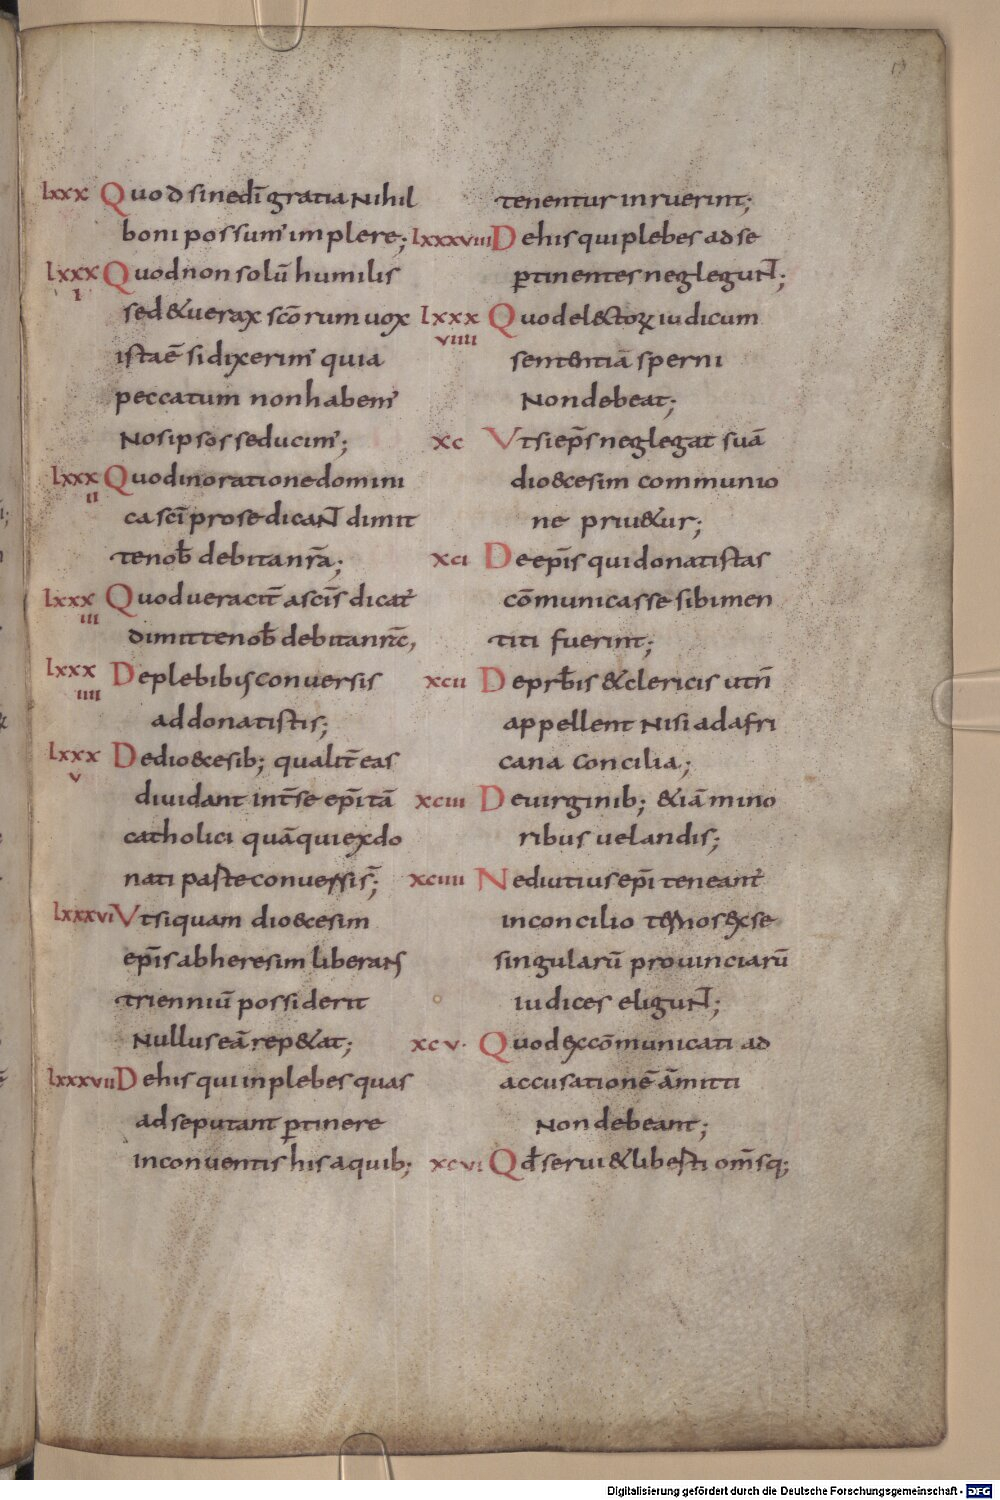 17
lxxx Quod sine dī gratia nihil
boni possum' implere;
lxxxi Quod non solū humilis
sed & uerax scōrum uox
ista ē si dixerim' quia
peccatum non habem'
nos ipsos seducim';
lxxxii Quod in oratione domini
ca scī pro se dicant dimit
te nob̄ debita nr̄a;
lxxxiii Quod ueracit̄ a scīs dicat'
dimitte nob̄ debita nr̄ā,
lxxxiiii De plebibis conuersis
ad donatistis;
lxxxv De dio&cesib; qualit̄ eas
diuidant int̄ se ep̄i tā
catholici quā qui ex do
nati parte conuersis̄;
lxxxvi Vt si quam dio&cesim
ep̄is ab heresim liberans
trienniū possiderit
nullus eā rep&at;
lxxxvii De his qui in plebes quas
ad se putant ꝑtinere
inconuentis his a quib;
tenentur inruerint;
lxxxviii De his qui plebes ad se
ꝑtinentes neglegunt;
lxxxviiii Quod electoꝝ iudicum
sententiā sperni
non debeat;
xc Vt si ep̄s neglegat suā
dio&cesim communio
ne priu&ur;
xci De ep̄is qui donatistas
cōmunicasse sibi men
titi fuerint;
xcii De prb̄is & clericis ut n̄
appellent nisi ad afri
cana concilia;
xciii De uirginib; &iā mino
ribus uelandis;
xciiii Ne diutius ep̄i teneant'
in concilio ternos ex se
singularū prouinciarū
iudices eligunt;
xcv. Quod excōmunicati ad
accusationē āmitti
non debeant;
xcvi Qd̄ serui & liberti om̄sq;
Digitalisierung gefördert durch die Deutsche Forschungsgemeinschaft - DFG